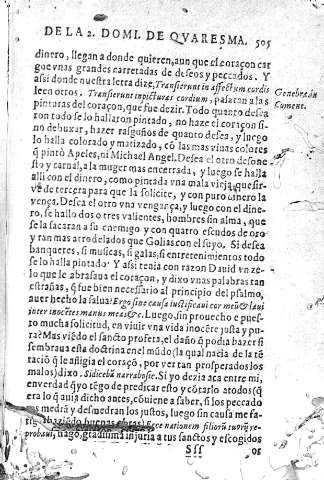 DE LA 2. DOMI. DE QVARESMA. 505
dinero, llegan a donde quieren, aun que el coraçon car
gue vnas grandes carretadas de deseos y peccados. Y
assi donde nuestra letra dize, Transierunt in affectum cordis
leen otros. Transierunt in picturas cordium, passaran a las
Genebra. in
Coment.
pinturas del coraçon, que fue dezir. Todo quanto desea
ron todo se lo hallaron pintado, no haze el coraçon si-
no debuxar, hazer rasguños de quanto desea, y luego
lo halla colorado y matizado, cõ las mas viuas colores
q̃ pintò Apeles, ni Michael Angel. Desea el otro desone
sto y carnal, a la muger mas encerrada, y luego se halla
alli con el dinero, como pintada vna mala vieja, que sir-
ve de tercera para que la solicite, y con puro dinero la
vença. Desea el otro vna vengança, y luego con el dine-
ro, se hallo dos o tres valientes, hombres sin alma, que
se la sacaran a su enemigo y con quatro escudos de oro
y ran mas arrodelados que Golias con el suyo. Si desea
banquetes, si musicas, si galas, si entretenimientos todo
se lo halla pintado. Y assi tenia con razon Dauid vn ze-
lo que le abrasaua el coraçon, y dixo vnas palabras tan
estrañas, q̃ fue bien necessario al principio del psalmo,
auer hecho la salua. Ergo sine causa iustificaui cor meũ & laui
inter inocẽtes manus meas &c. Luego, sin prouecho e pues-
to mucha solicitud, en viuir vna vida inocẽte justa y pu-
ra? Mas viẽdo el sancto profeta, el daño q̃ podia hazer si
sembraua esta doctrina en el mũdo (la qual nacia de la tẽ
tació q̃ le afligia el coraçó, por ver tan prosperados los
malos) dixo. Si dicebã narrabo sic. Si yo dezia aca entre mi,
en verdad q̃ yo tẽgo de predicar esto y cõtarlo a todos (q̃
era lo q̃ auia dicho antes, cõuiene a saber, si los peccado
res medrã y desuedran los justos, luego sin causa me fa-
tigo haziẽdo buenas obras) Ecce nationem filiorũ tuorũ re-
probaui, hago, gradissima injuria a tus sanctos y escogidos
Sss